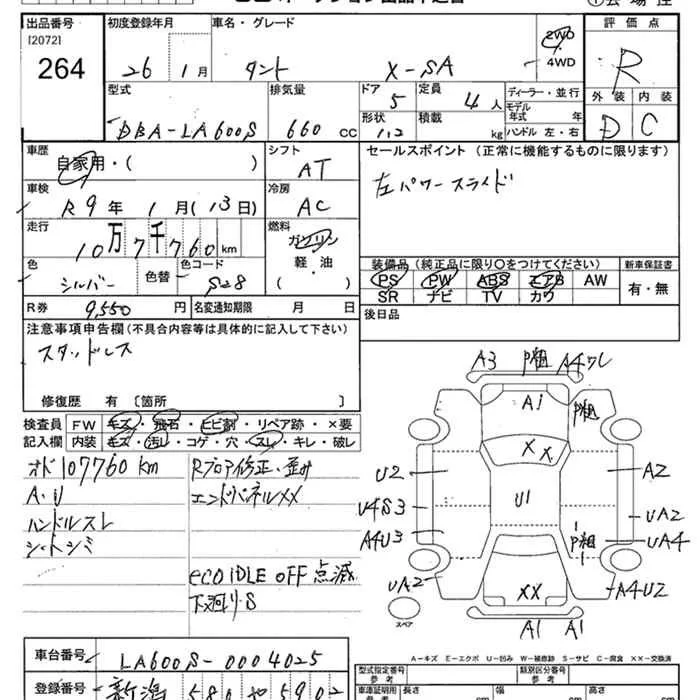 出品番号 初度登録年月 車名・グレード 2WD 評価点
[2072] 264 26 1月 タント X-SA 4WD R
型式 排気量 ドア 5 定員 4人 ディーラー・並行 外装 内装
モデル年式 年式
DBA-LA600S 660 CC 形状 積載 kg ハンドル 左・右 D C
車歴 シフト セールスポイント(正常に機能するものに限ります)
自家用・( ) AT 左パワースライド
車検 冷房
R9年 1月(13日) AC
走行 燃料
10万7千760km ガソリン
軽・油
色 色替 色コード ( ) 装備品(純正品に限り○をつけてください) 新車保証書
シルバー S28 PS PW ABS エアB AW 有・無
SR ナビ TV カワ
R券 9,550円 名変通知期限 月 日 後日品
注意事項申告欄(不具合内容等は具体的に記入して下さい)
スタッドレス
修復歴 有 〔箇所 〕
検査員 FW キズ・飛石・ヒビ割・リペア跡・×要
記入欄 内装 キズ・汚レ・コゲ・穴・スレ・キレ・破レ
オド107760km Rフロア修正・歪み
A・U エンドパネルXX
ハンドルスレ
シートシミ
eco IDLE OFF 点滅
下廻り・S
A3 P粗 A4ワレ
A1 P粗
XX
U2 A2
U1
U4S3 UA2
A4U3 P粗 UA4
UA2 XX A4U2
スペア
A1 A1
A-キズ E-エクボ U-凹み W-補修跡 S-サビ C-腐食 XX-交換済
車台番号 LA600S-0004025 型式指定番号 参考 類別区分番号 参考
登録番号 新潟 580 や 5902 車庫証明用 参考 長さ cm 幅 cm 高さ cm